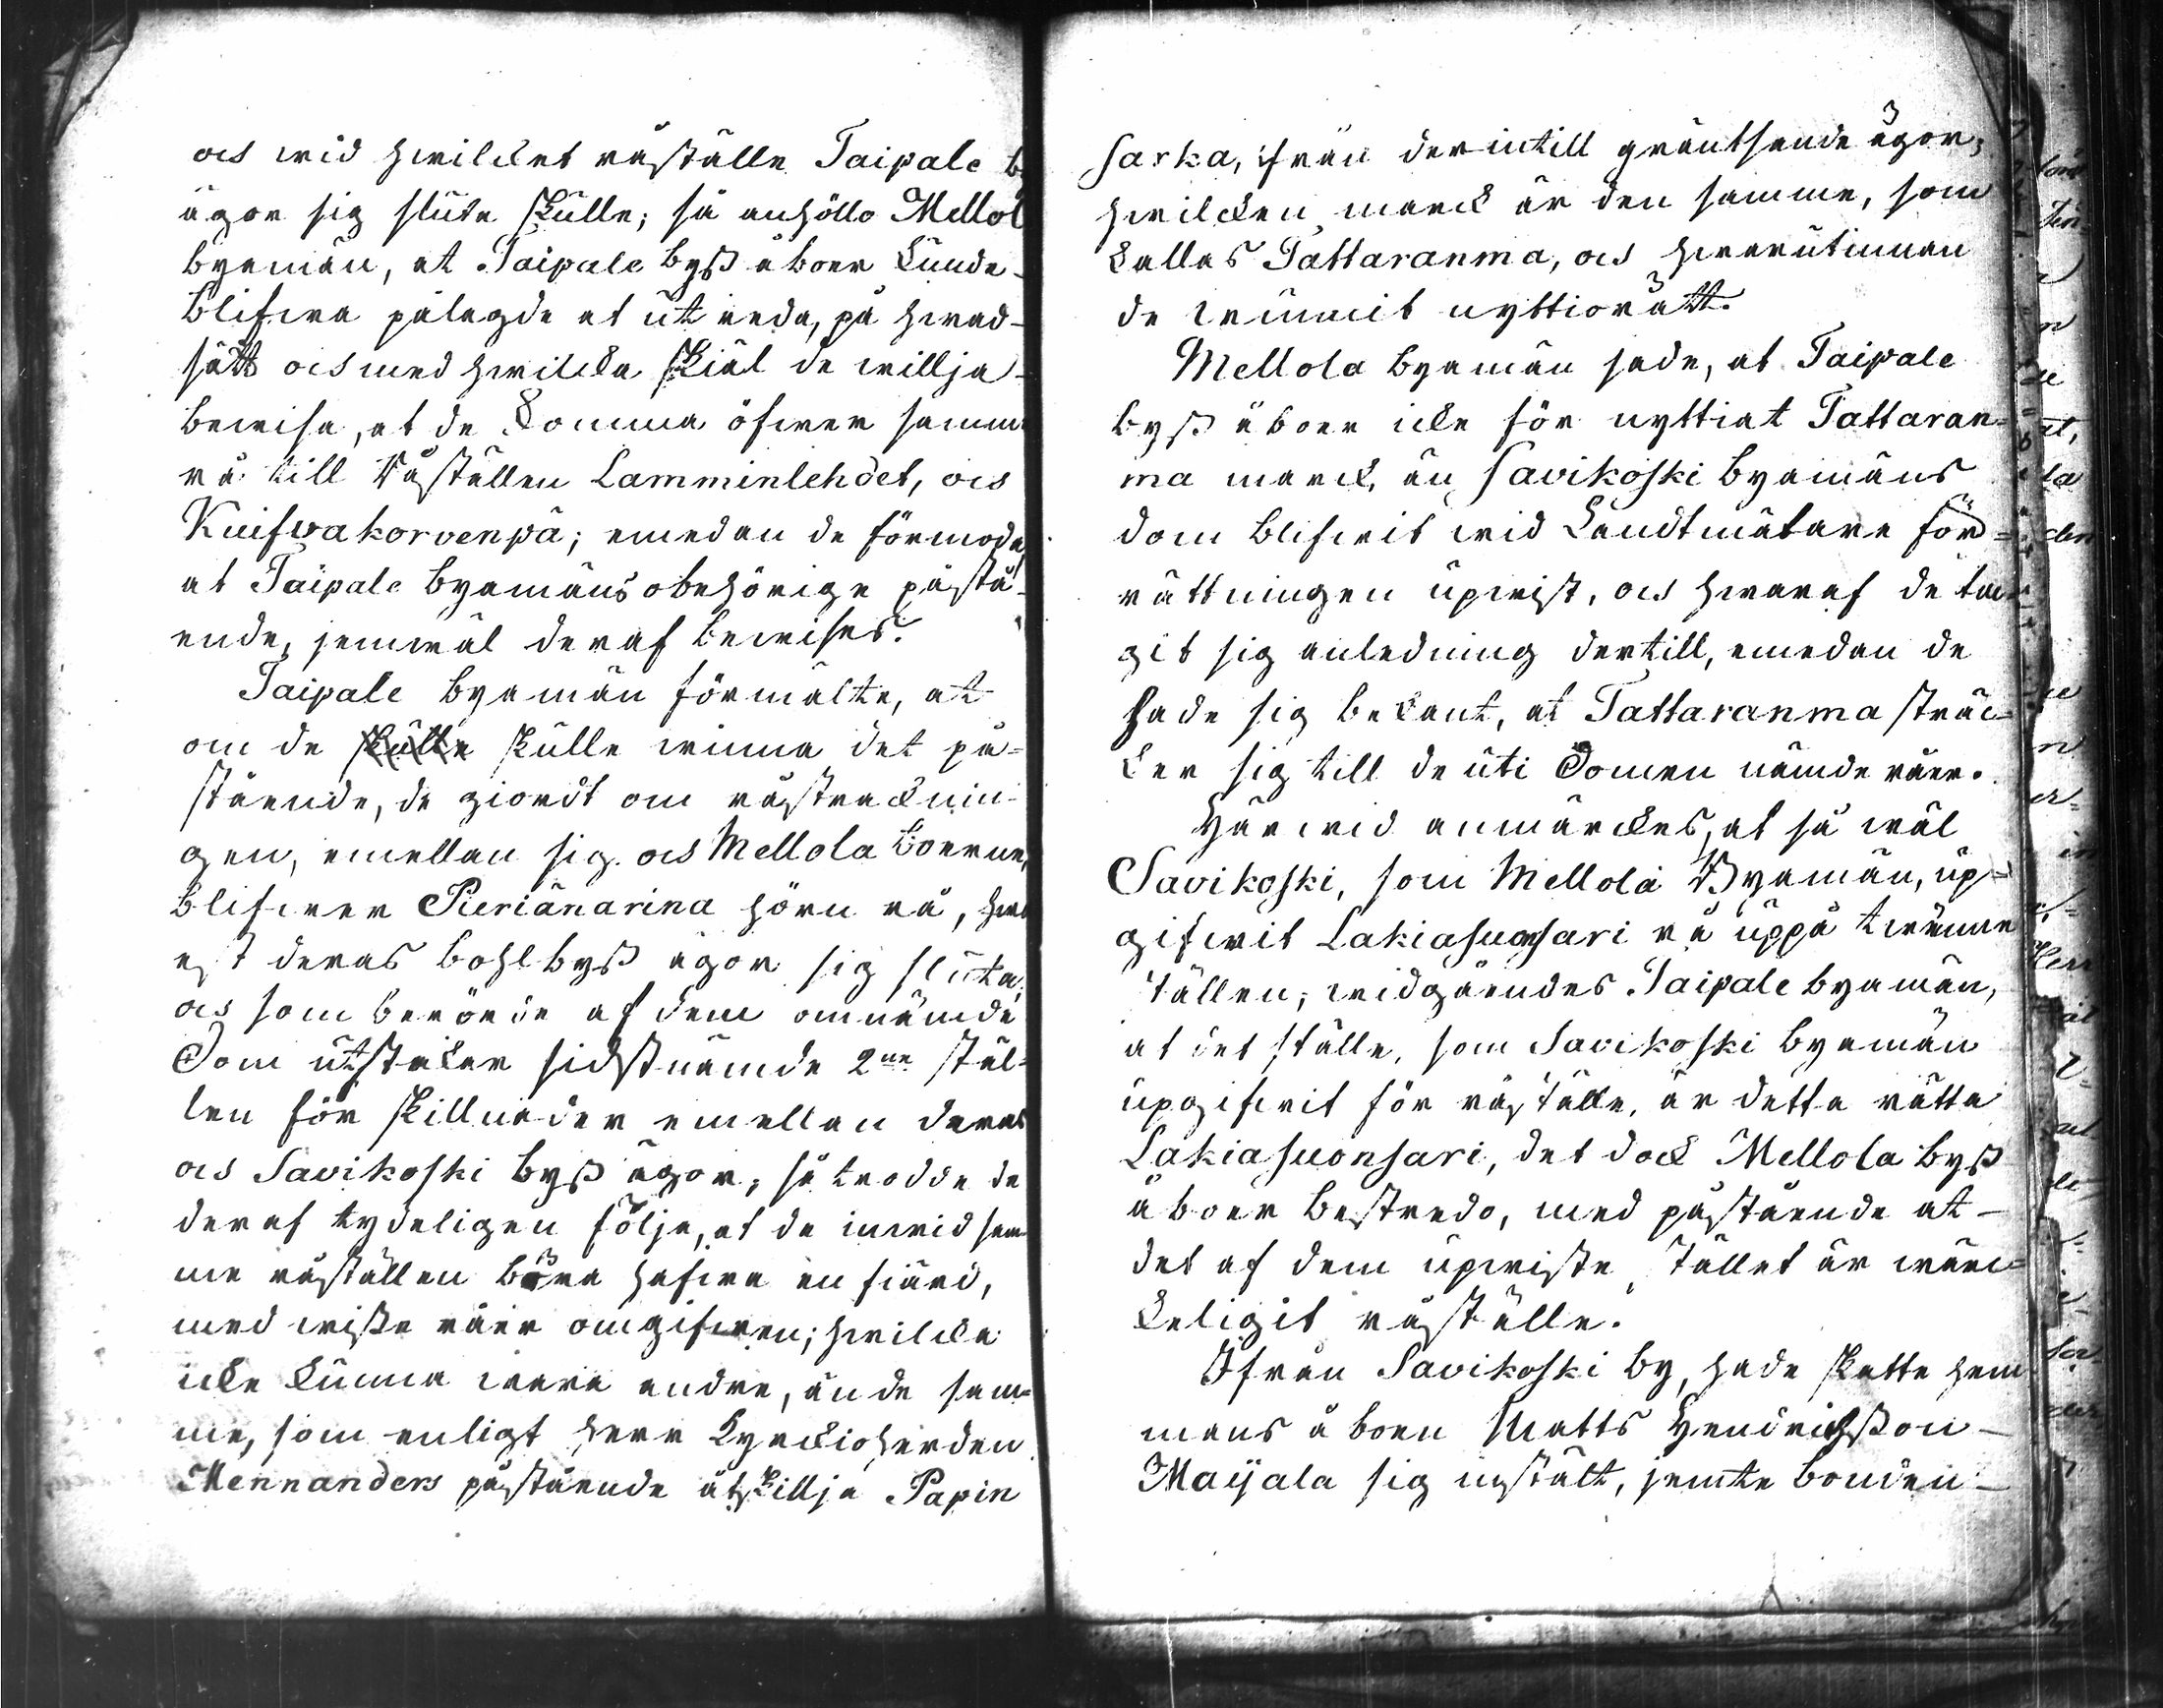 och wid hwilcket råställe Taipale
ägor sig sluta skulle; så anhöllo Mellol
byamän, at Taipale byß åboer kunde
blifwa pålagde at utreda, på hwad
sätt och med hwilcka skiäl de willja
bewisa, at de komma öfwer samm
rå till Råställen Lamminlehdet, och
Kuifwakorvenpä; emedan de förmoda,
at Taipale byamäns obehörige påstå-
ende, jemwäl deraf bewises.
Taipale byamän förmälte, at
om de skulle skulle winna det på-
stående, de giordt om råstracknin-
gen, emellan sig och Mellola boerne,
blifwer Pieriänarina hörn rå, hwar
est deras bohlbyß ägor sig sluta,
och som berörde af dem omnämde
Dom utstakar sidstnämde 2ne stäl-
len för skillnader emellan deras
och Savikoski byß ägor; så trodde de
deraf tydeligen följa, at de inwid sam-
me råställen böra hafwa en fiärd,
med wiße råer omgifwen; hwilcka
icke kunna wara andre, än de sam-
me, som enligt herr Kyrckioherden
Mennanders påstående åtskillja Papin
sarka, ifrån derintill gräntsande ägor;
hwilcken marck är den samme, som
kallas Tattaranma, och hwarutinnan
de wunnit nyttiorätt.
Mellola byamän sade, at Taipale
byß åboer icke för nyttiat Tattaran-
ma marck, än Savikoski byamäns
dom blifwit wid Landtmätare för-
rättningen upwist, och hwaraf de ta-
git sig anledning dertill, emedan de
hade sig bekant, at Tattaranma sträc-
ker sig till de uti Domen nämde råer.
Härwid anmärckes, at så wäl
Savikoski, som Mellola Byamän, up-
gifwit Lakiasuonsari rå uppå twänne
ställen; widgåendes Taipale byamän,
at det ställe, som Savikoski byamän
upgifwit för råställe, är detta rätta
Lakiasuonsari, det dock Mellola byß
åboer bestredo, med påstående at
det af dem upwiste stället är wärc-
keligit råställe.
Ifrån Savikoski by, hade skatte hem-
mans åboen Matts Hendrichßon
Maijala sig instält, jemte bonden